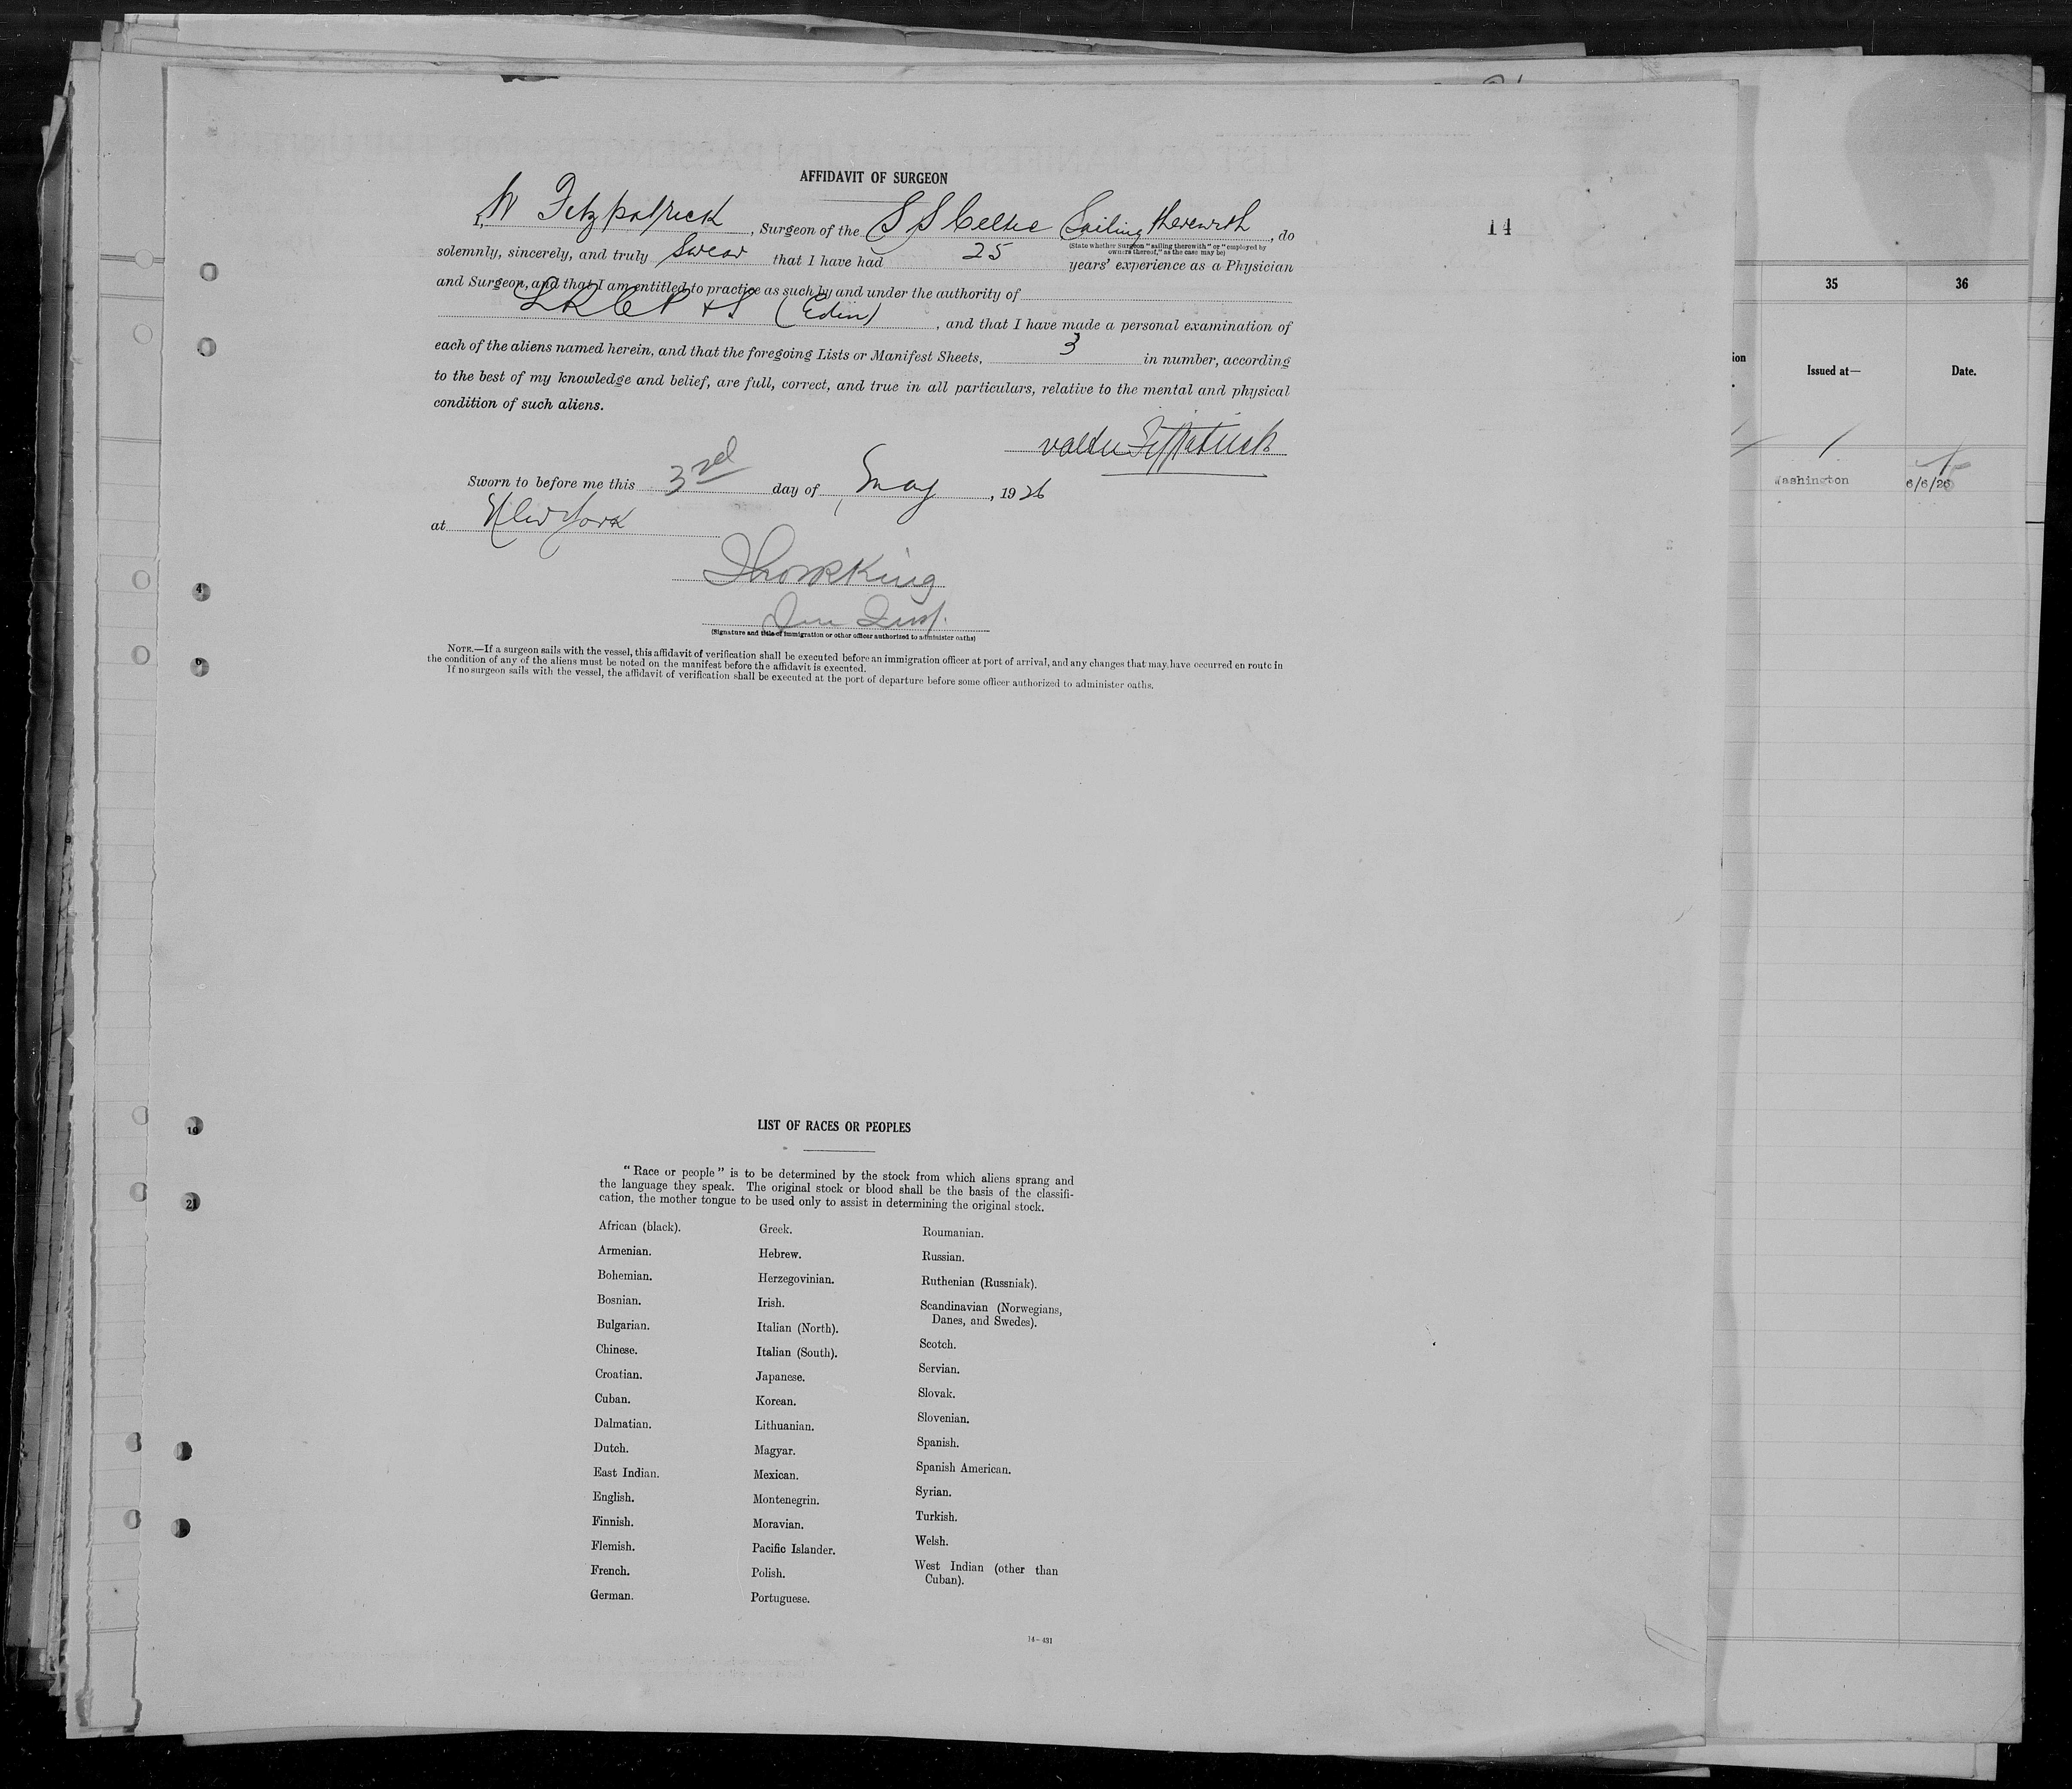 AFFIDAVIT OF SURGEON
I, W Fitzpatrick, Surgeon of the S S Celtic Sailing therewith, do
(State whether Surgeon "sailing therewith" or "employed by
owners thereof," as the case may be)
solemnly, sincerely, and truly swear that I have had 25 years' experience as a Physician
and Surgeon, and that I am entitled to practice as such by and under the authority of
LRCP & S (Edin), and that I have made a personal examination of
each of the aliens named herein, and that the foregoing Lists or Manifest Sheets, 3 in number, according
to the best of my knowledge and belief, are full, correct, and true in all particulars, relative to the mental and physical
condition of such aliens.
Fitzpatrick
Sworn to before me this 3rd day of May, 1926
at New York
King
(Signature and title of immigration or other officer authorized to administer oaths)
NOTE.—If a surgeon sails with the vessel, this affidavit of verification shall be executed before an immigration officer at port of arrival, and any changes that may have occurred en route in
the condition of any of the aliens must be noted on the manifest before the affidavit is executed.
If no surgeon sails with the vessel, the affidavit of verification shall be executed at the port of departure before some officer authorized to administer oaths.
14
4
6
19
21
LIST OF RACES OR PEOPLES
"Race or people" is to be determined by the stock from which aliens sprang and
the language they speak. The original stock or blood shall be the basis of the classifi-
cation, the mother tongue to be used only to assist in determining the original stock.
African (black).
Armenian.
Bohemian.
Bosnian.
Bulgarian.
Chinese.
Croatian.
Cuban.
Dalmatian.
Dutch.
East Indian.
English.
Finnish.
Flemish.
French.
German.
Greek.
Hebrew.
Herzegovinian.
Irish.
Italian (North).
Italian (South).
Japanese.
Korean.
Lithuanian.
Magyar.
Mexican.
Montenegrin.
Moravian.
Pacific Islander.
Polish.
Portuguese.
Roumanian.
Russian.
Ruthenian (Russniak).
Scandinavian (Norwegians,
Danes, and Swedes).
Scotch.
Servian.
Slovak.
Slovenian.
Spanish.
Spanish American.
Syrian.
Turkish.
Welsh.
West Indian (other than
Cuban).
14—431
35
36
ion
Issued at—
Date.
Washington
6/6/26